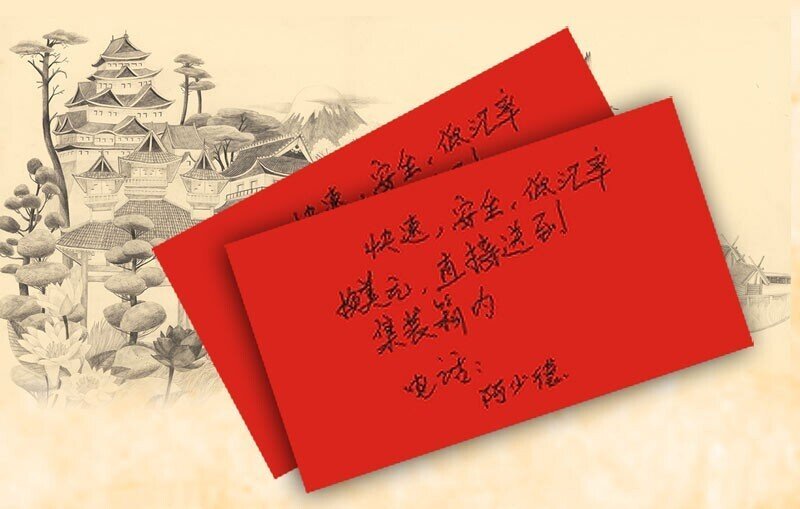 快速，安全，低汇率
快速，安全，低汇率
换美元，直接送到
集装箱内
电话：
阿少穗